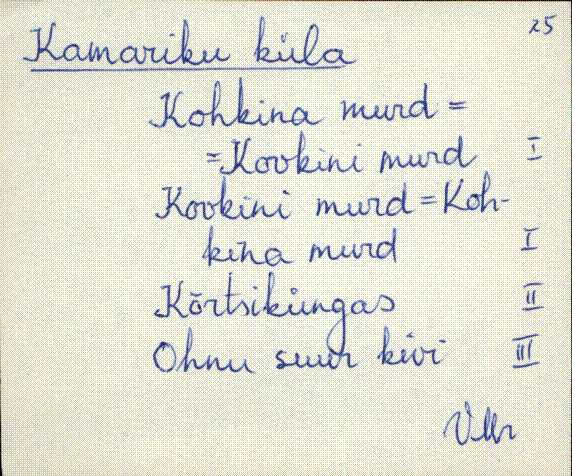 25
Kamariku küla
Kohkina murd =
=Kovkini murd I
Kovkini murd = Koh-
kina murd I
Kõrtsiküngas II
Ohnu suur kivi III